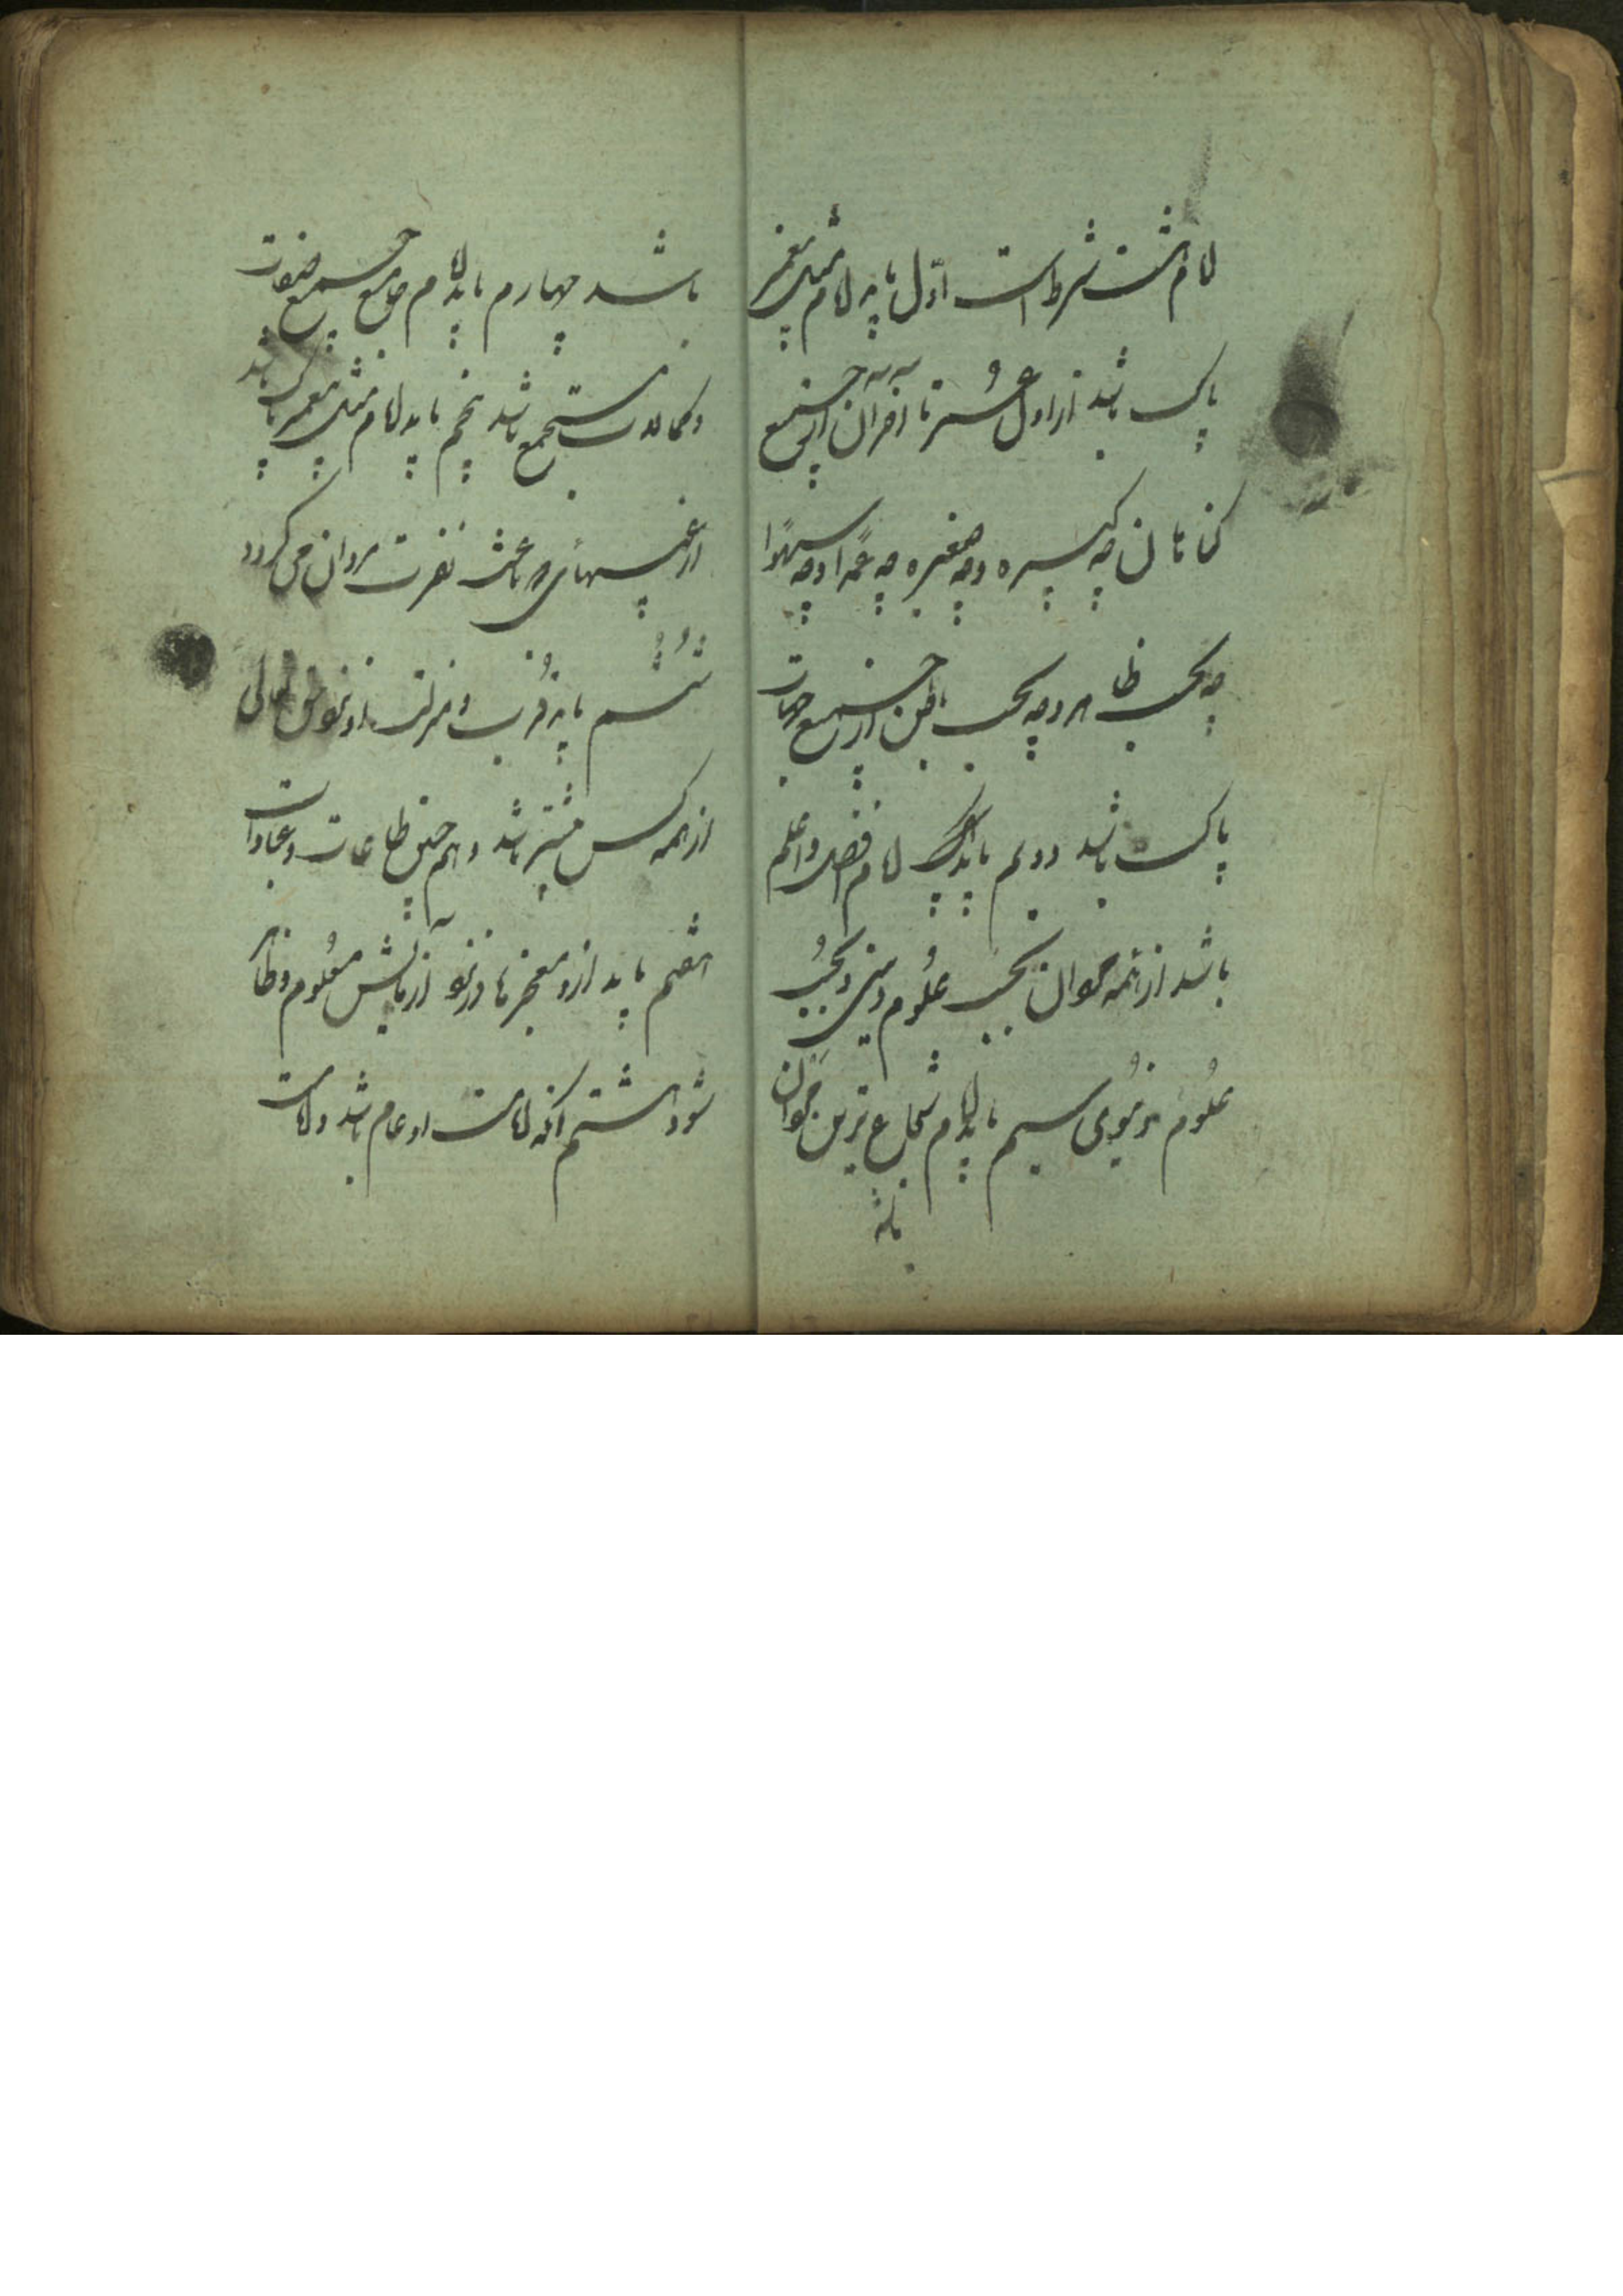 امام هشت شرط است اوّل باید امام مثل پیغمبر
پاک باشد از اول عمر تا آخر آن از جمیع
گناهان چه کبیره و چه صغیره چه عمدا و چه سهوا
چه بحسب ظاهر و چه بحسب باطن از جمیع جهات
پاک باشد دویم باید که امام افضل و اعلم
باشد از همه اهل آن بحسب علوم دینی و بحسب
علوم دنیوی سیم باید امام شجاع ترین اهل آن
باشد
باشد چهارم باید امام جامع جمیع صفات
و کمالات مستجمع باشد پنجم باید امام مثل پیغمبر پاک باشد
از عیبهائی که باعث نفرت مردان می گردد
ششم باید قرب و منزلت او نزد حق تعالی
از همه کس بیشتر باشد و هم چنین طاعات و عبادات
هفتم باید از او معجزها در نزد آزمایش معلوم و ظاهر
شود هشتم آنکه امامت او عام باشد و امامت